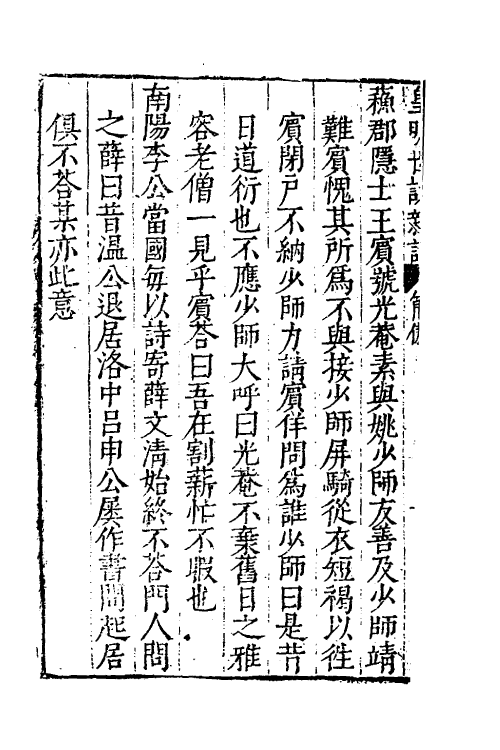 皇明世說新語
蘓郡隱士王賓號光菴素與姚少師友善及少師靖
難賓愧其所爲不與接少師屏騎從衣短褐以徃
賓閉戸不納少師力請賓佯問爲誰少師曰是昔
日道衍也不應少師大呼曰光菴不棄舊日之雅
容老僧一見乎賓荅曰吾在割薪忙不暇也
南陽李公當國每以詩寄薛文清始終不荅門人問
之薛曰昔温公退居洛中吕申公屡作書問起居
俱不荅某亦此意